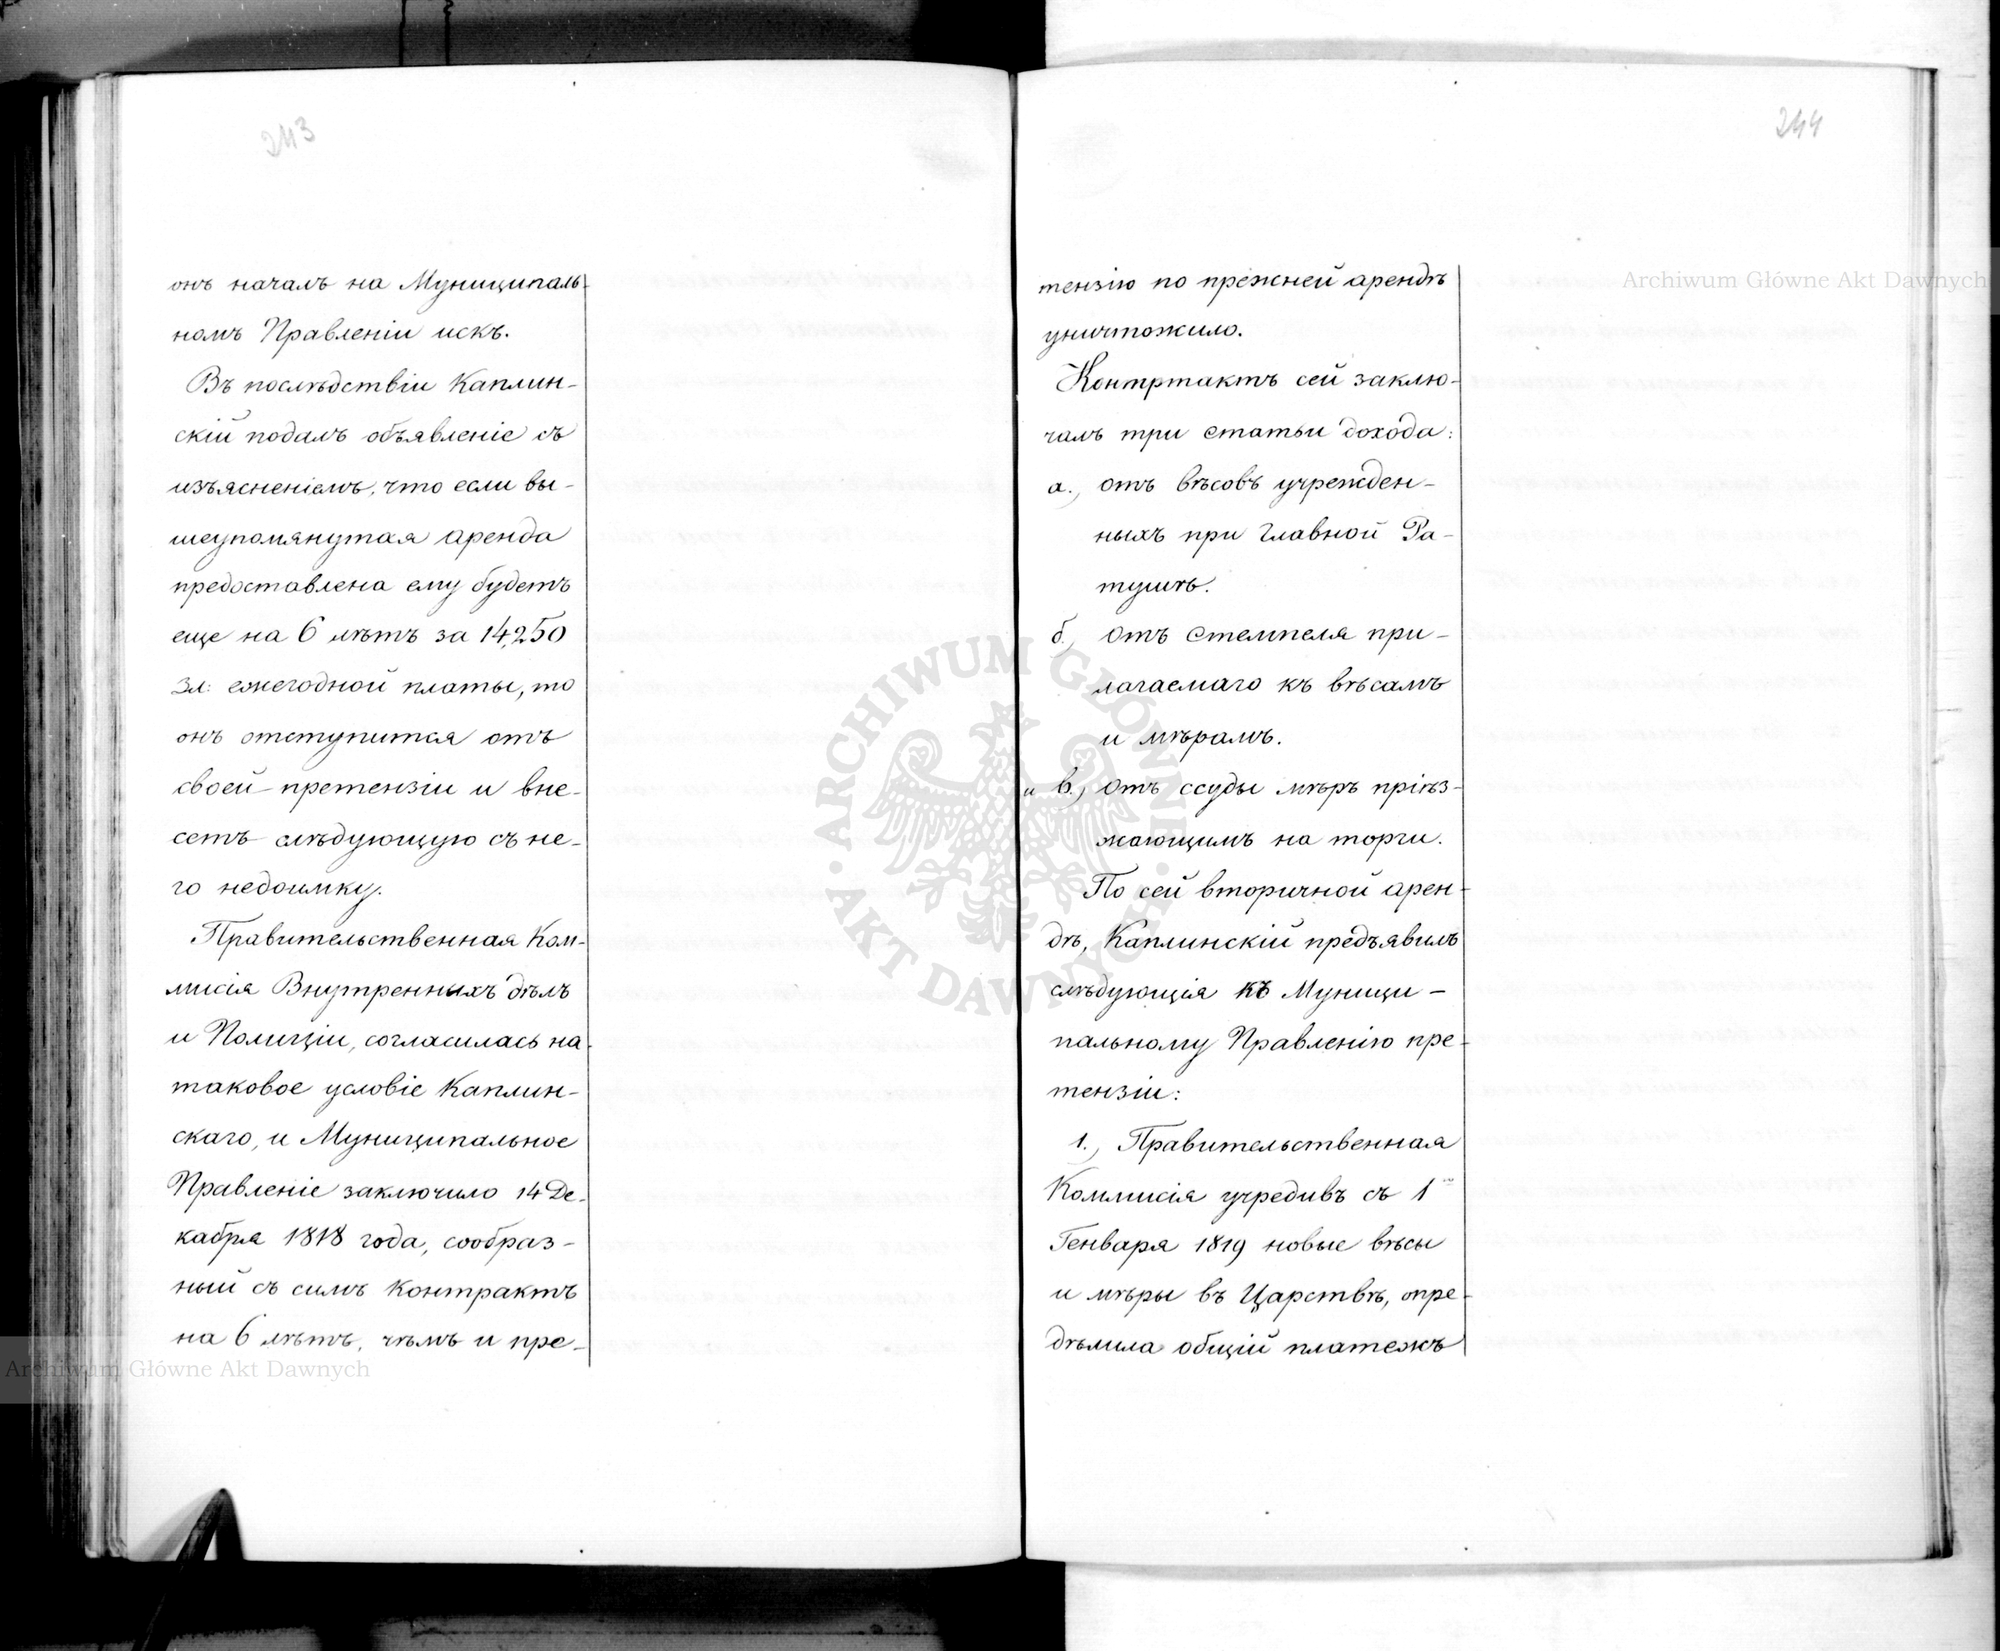 243
онъ началъ на Муниципаль-
номъ Правленіи искъ.
Въ послѣдствіи Каплин-
скій подалъ объявленіе съ
изъясненіемъ, что если вы-
шеупомянутая аренда
предоставлена ему будетъ
еще на 6 лѣтъ за 14,250
Зл: ежегодной платы, то
онъ отступится отъ
своей претензіи и вне-
сетъ слѣдующую съ не-
го недоимку.
Правительственная Ком-
мисія Внутренныхъ дѣлъ
и Полиціи, согласилась на
таковое условіе Каплин-
скаго, и Муниципальное
Правленіе заключило 14 Де-
кабря 1818 года, сообраз-
ный съ симъ Контрактъ
на 6 лѣтъ, чѣмъ и пре-
244
тензію по прежней арендѣ
уничтожило.
Контртактъ сей заклю-
чалъ три статьи дохода:
а., отъ вѣсовъ учрежден-
ныхъ при Главной Ра-
тушѣ.
б., отъ Стемпеля при-
лагаемаго къ вѣсамъ
и мѣрамъ.
и в., отъ ссуды мѣръ пріѣз-
жающимъ на торги.
По сей вторичной арен-
дѣ, Каплинскій предъявилъ
слѣдующія къ Муници-
пальному Правленію пре-
тензіи:
1., Правительственная
Коммисія учредивъ съ 1го
Генваря 1819 новые вѣсы
и мѣры въ Царствѣ, опре-
дѣлила общій платежъ
Archiwum Główne Akt Dawnych
Archiwum Główne Akt Dawnych
ARCHIWUM GŁÓWNE · AKT DAWNYCH ·